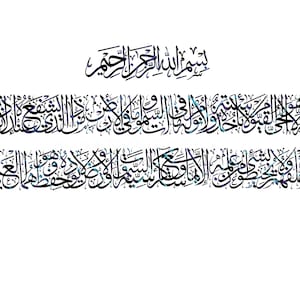 بسم الله الرحمن الرحيم
الحي القيوم لا تأخذه سنة ولا نوم له ما في السموات وما في الأرض من ذا الذي يشفع عند
خلفهم ولا يحيطون بشيء من علمه إلا بما شاء وسع كرسيه السموات والأرض ولا يؤده حفظهما وهو الع